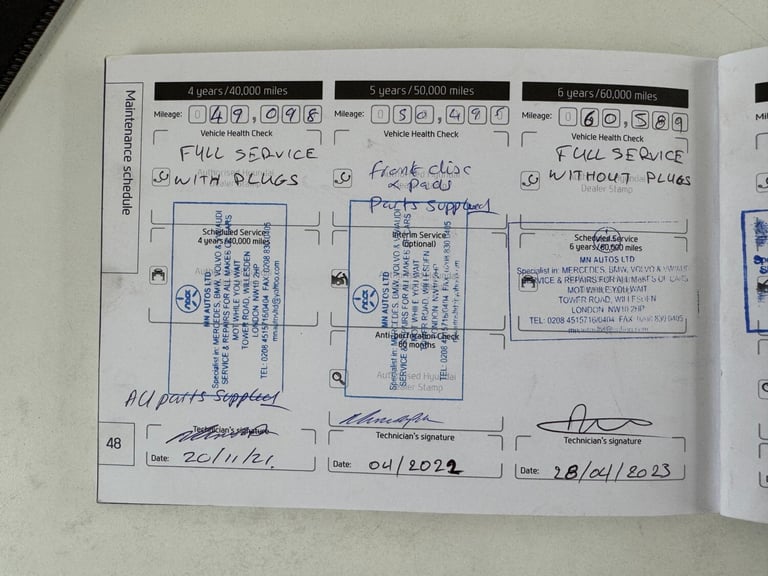 Maintenance schedule
4 years/40,000 miles
Mileage: 0 49,098
Vehicle Health Check
FULL SERVICE
WITH PLUGS
Scheduled Service
4 years/40,000 miles
MN AUTOS LTD
Specialist in: MERCEDES, BMW, VOLVO & VW AUDI
SERVICE & REPAIRS FOR ALL MAKES OF CARS
MOT WHILE YOU WAIT
TOWER ROAD, WILLESDEN
LONDON NW10 2HP
TEL: 0208 4515716/0404 FAX: 0208 830 0405
All parts Supplied
Technician's signature
Date: 20/11/21.
48
5 years/50,000 miles
Mileage: 0 50,495
Vehicle Health Check
Authorised Hyundai
Front disc
& pads
Parts Supplied
Interim Service
(optional)
MN AUTOS LTD
Specialist in: MERCEDES, BMW, VOLVO & VW AUDI
SERVICE & REPAIRS FOR ALL MAKES OF CARS
MOT WHILE YOU WAIT
TOWER ROAD, WILLESDEN
LONDON NW10 2HP
Anti-perforation Check
60 months
Authorised Hyundai
Dealer Stamp
Technician's signature
Date: 04/2022
6 years/60,000 miles
Mileage: 0 60,589
Vehicle Health Check
FULL SERVICE
WITHOUT PLUGS
Dealer Stamp
Scheduled Service
6 years/60,000 miles
MN AUTOS LTD
Specialist in: MERCEDES, BMW, VOLVO &
SERVICE & REPAIRS FOR ALL MAKES OF CARS
MOT WHILE YOU WAIT
TOWER ROAD, WILLESDEN
LONDON NW10 2HP
TEL: 0208 4515716/0404 FAX 0208 830 0405
Technician's signature
Date: 28/04/2023